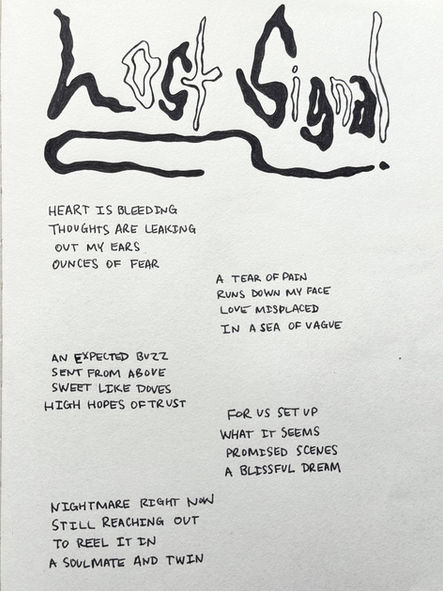 Lost Signal
HEART IS BLEEDING
THOUGHTS ARE LEAKING
OUT MY EARS
OUNCES OF FEAR
A TEAR OF PAIN
RUNS DOWN MY FACE
LOVE MISPLACED
IN A SEA OF VAGUE
AN EXPECTED BUZZ
SENT FROM ABOVE
SWEET LIKE DOVES
HIGH HOPES OF TRUST
FOR US SET UP
WHAT IT SEEMS
PROMISED SCENES
A BLISSFUL DREAM
NIGHTMARE RIGHT NOW
STILL REACHING OUT
TO REEL IT IN
A SOULMATE AND TWIN